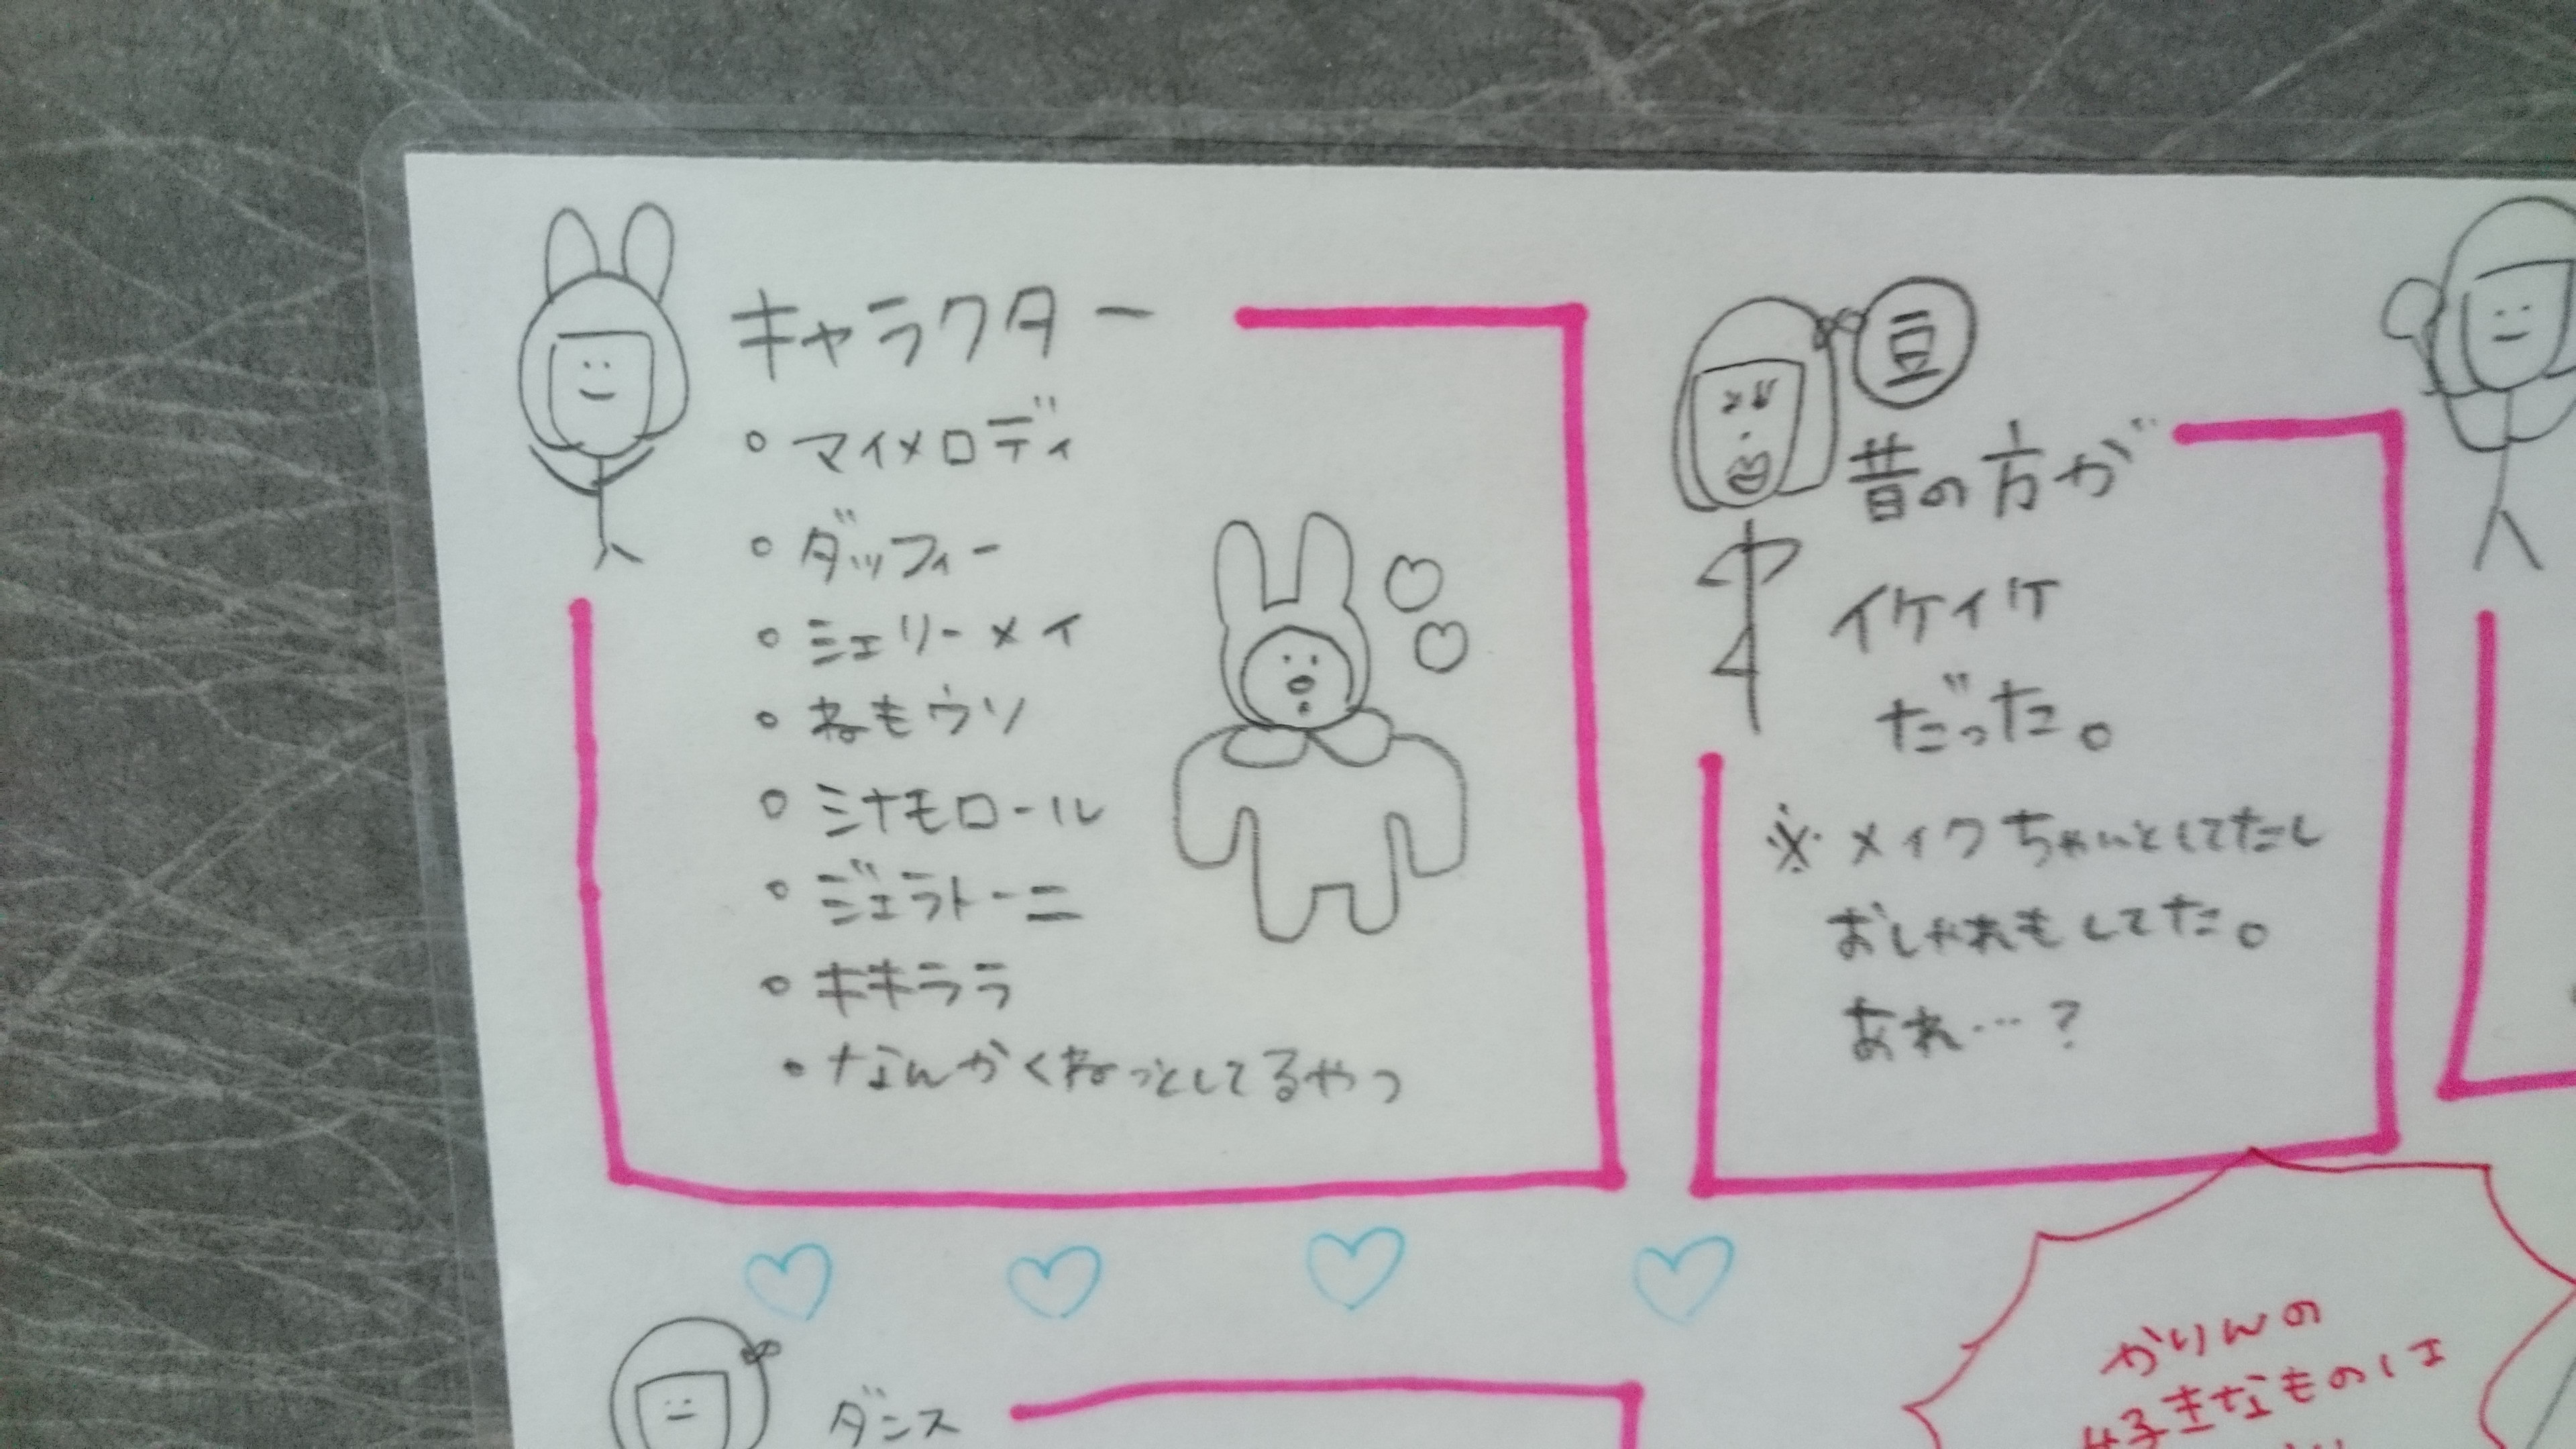 キャラクター
○ マイメロディ
○ ダッフィー
○ シェリーメイ
○ ねもウソ
○ ミナモロール
○ ジェラトーニ
○ キキララ
・なんかくねっとしてるやつ
豆
昔の方が
イケイケ
だった。
※メイクちゃんとしてたし
おしゃれもしてた。
あれ…?
ダンス
かりんの
好きなものは